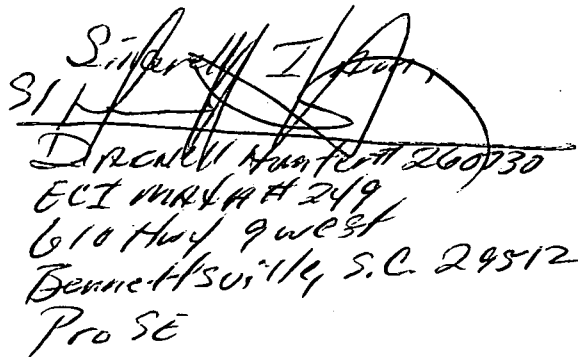 Sincerely I
S/
Hunter # 260930
ECI MAX A # 249
610 Hwy 9 west
Bennettsville, S.C. 29512
Pro SE